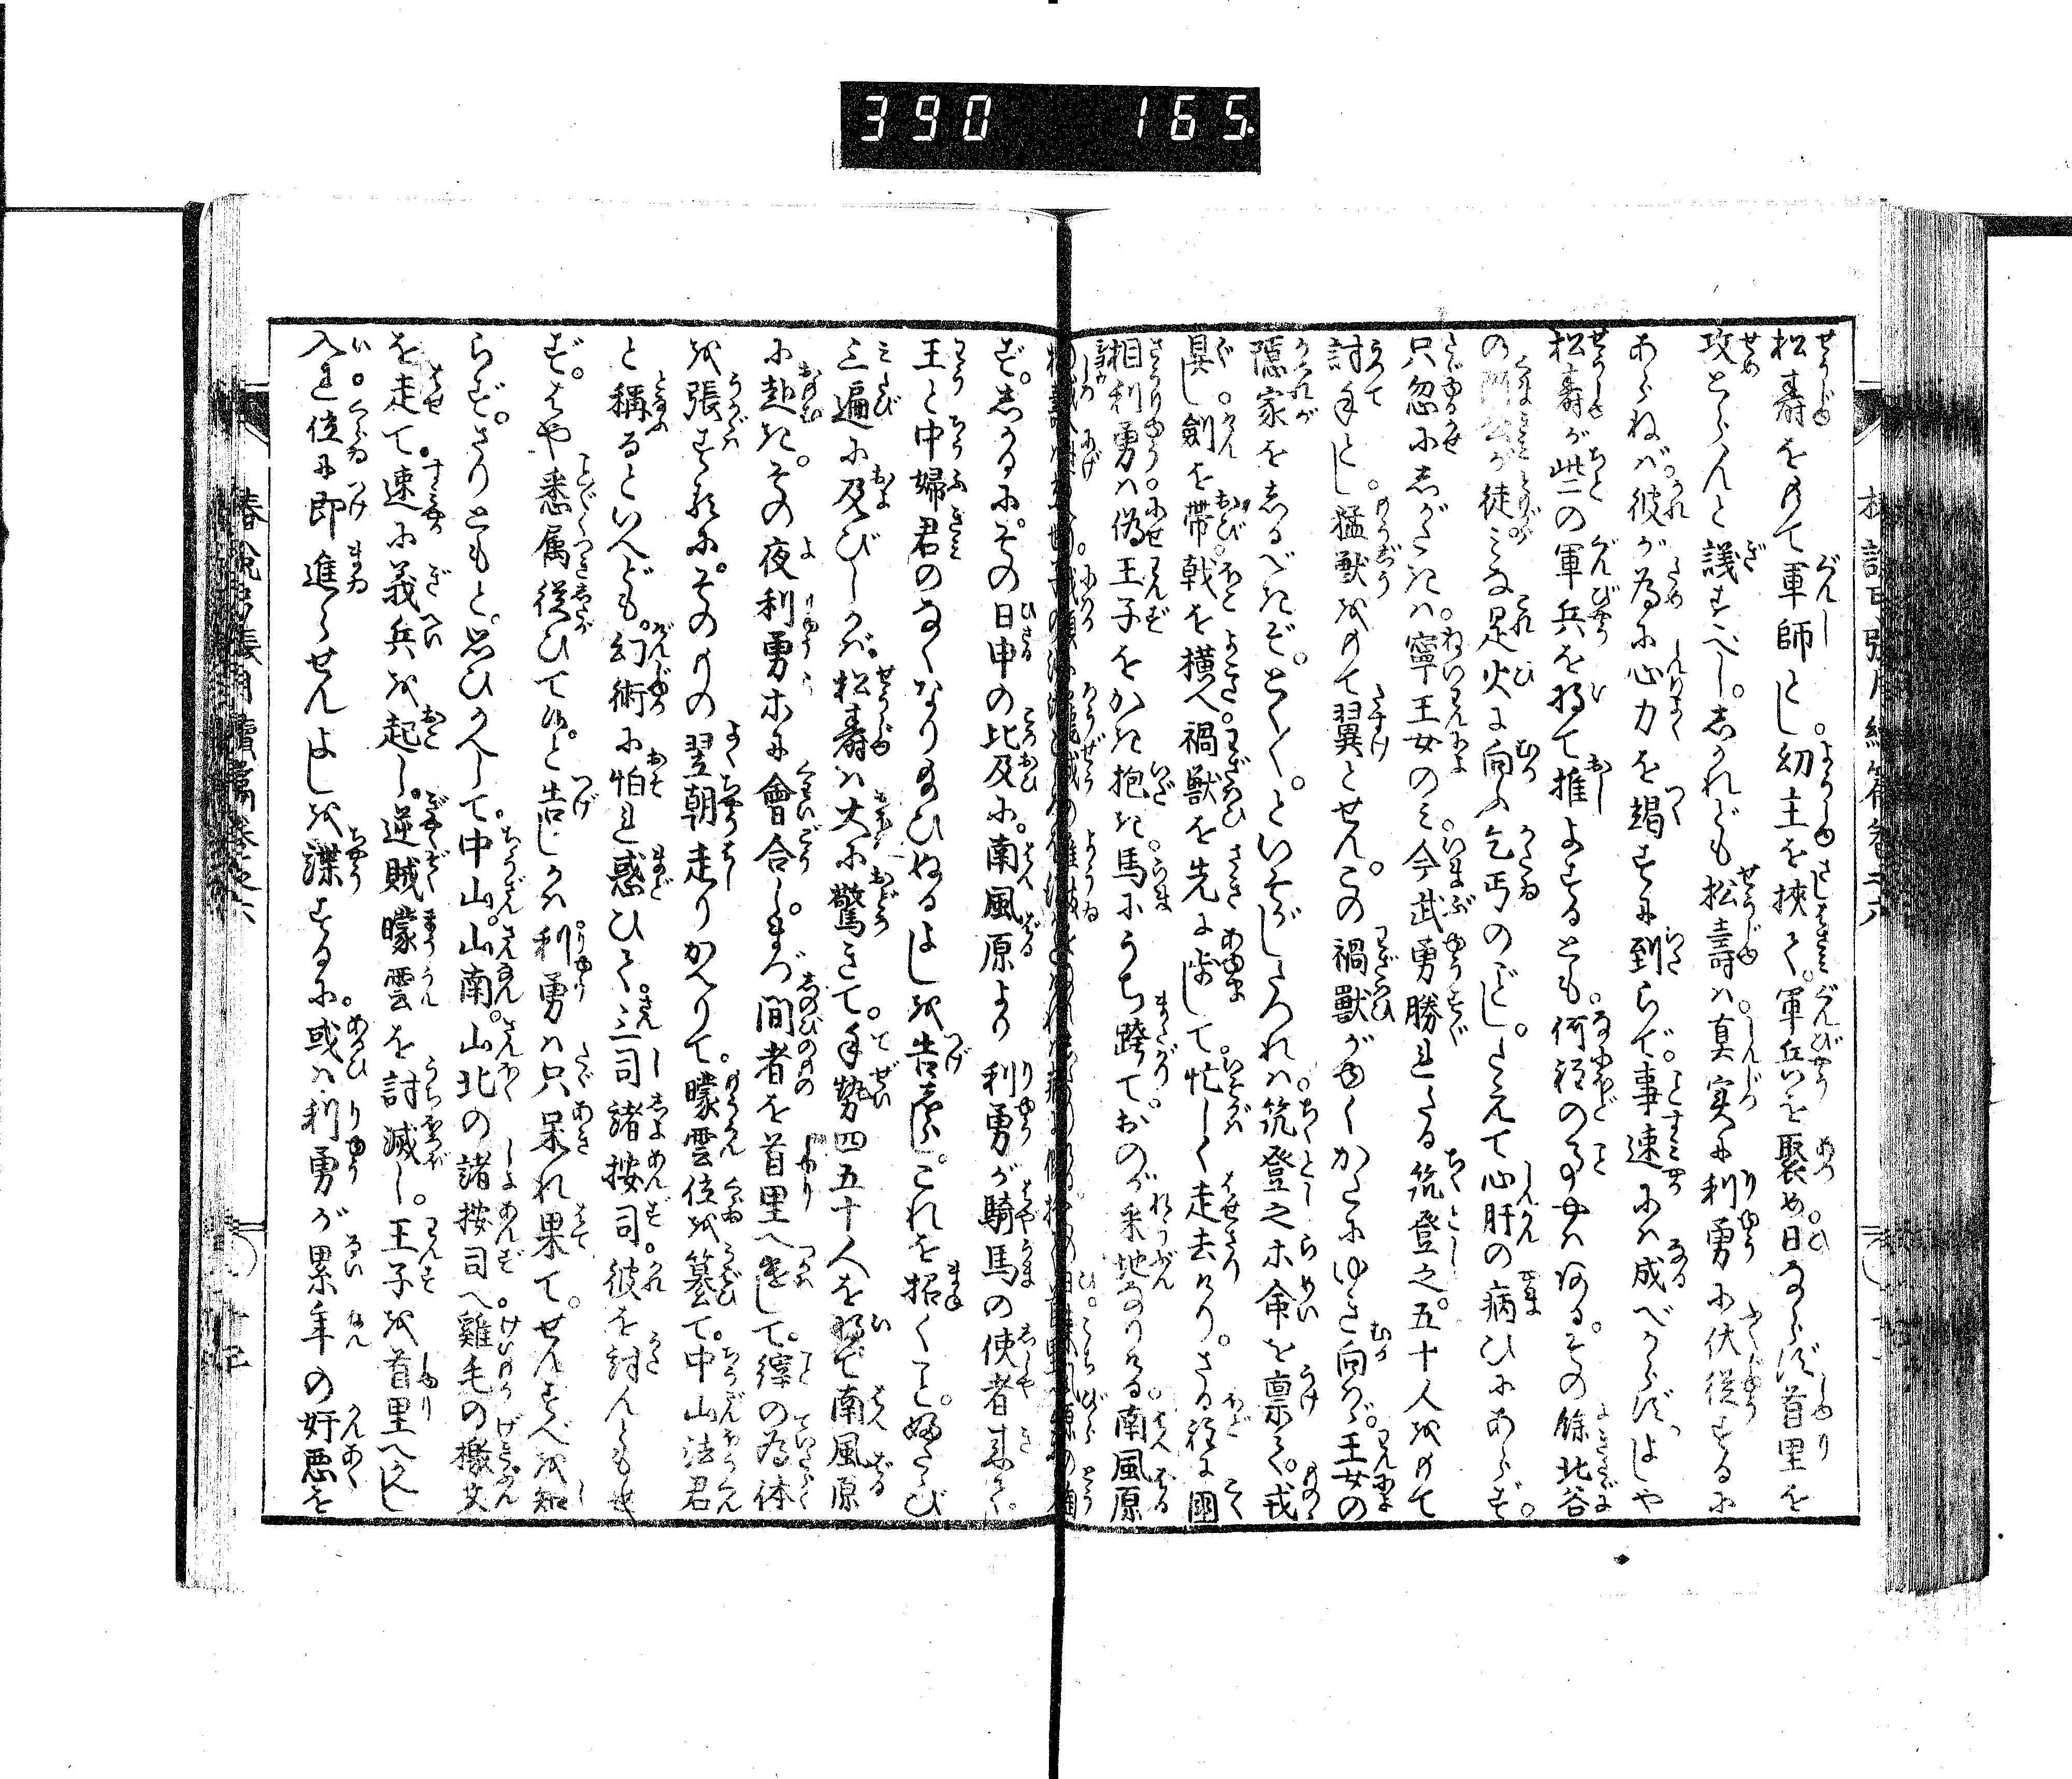 390 165.
松壽をもて軍師とし幼主を挾て。軍兵を聚め。日ならず首里を
攻とらんと議すべし。しかれども松壽は。真実に利勇に伏従するに
あらねば。彼が為に心力を竭すに到らで。事速には成べからず。よしや
松壽が些の軍兵を将て推よするとも。何程の事かはある。その餘北谷
の徒みな是火に向ふ乞丐のごとし。たえて心肝の病ひにあらず。
只忽にしがたきは。寧王女のみ。今武勇勝れたる筑登之。五十人をもて
討手とし。猛獣をもて翼とせん。この禍獣がゆくかたにゆき向はゞ。王女の
隠家をしるべきぞ。とく〳〵。といそがしたつれは。筑登之ホ命を禀て。戎
具し。劍を帶。戟を横へ禍獣を先に歩して。忙しく走去けり。さる程に國
相利勇は。偽王子をかき抱き。馬にうち跨て。おのが釆地なりける。南風原
ず。しかるに。その日申の比及に。南風原より利勇が騎馬の使者来て。
王と中婦君のなくなり給ひぬるよしを告しらし。これを招くこと。婦たび
三遍に及びしかば。松壽は大に驚きて。手勢四五十人を将て南風原
に赴き。その夜利勇ホに會合し。まづ間者を首里へ遣して。縡の為体
を張するに。そのもの翌朝走りかへりて。曚雲位を簒て。中山法君
と稱るといへども。幻術に怕れ惑ひて。三司諸按司。彼を討んともせ
ず。はや悉属従ひて候。と告しかは利勇は只呆れ果て。せんすべを知
らず。さりともと。思ひかへして。中山。山南。山北の諸按司へ雞毛の檄文
を走て。速に義兵を起し。逆賊曚雲を討滅し。王子を首里へかへし
入れ位に即進らせんよしを諜するに。或は利勇が累年の奸悪を